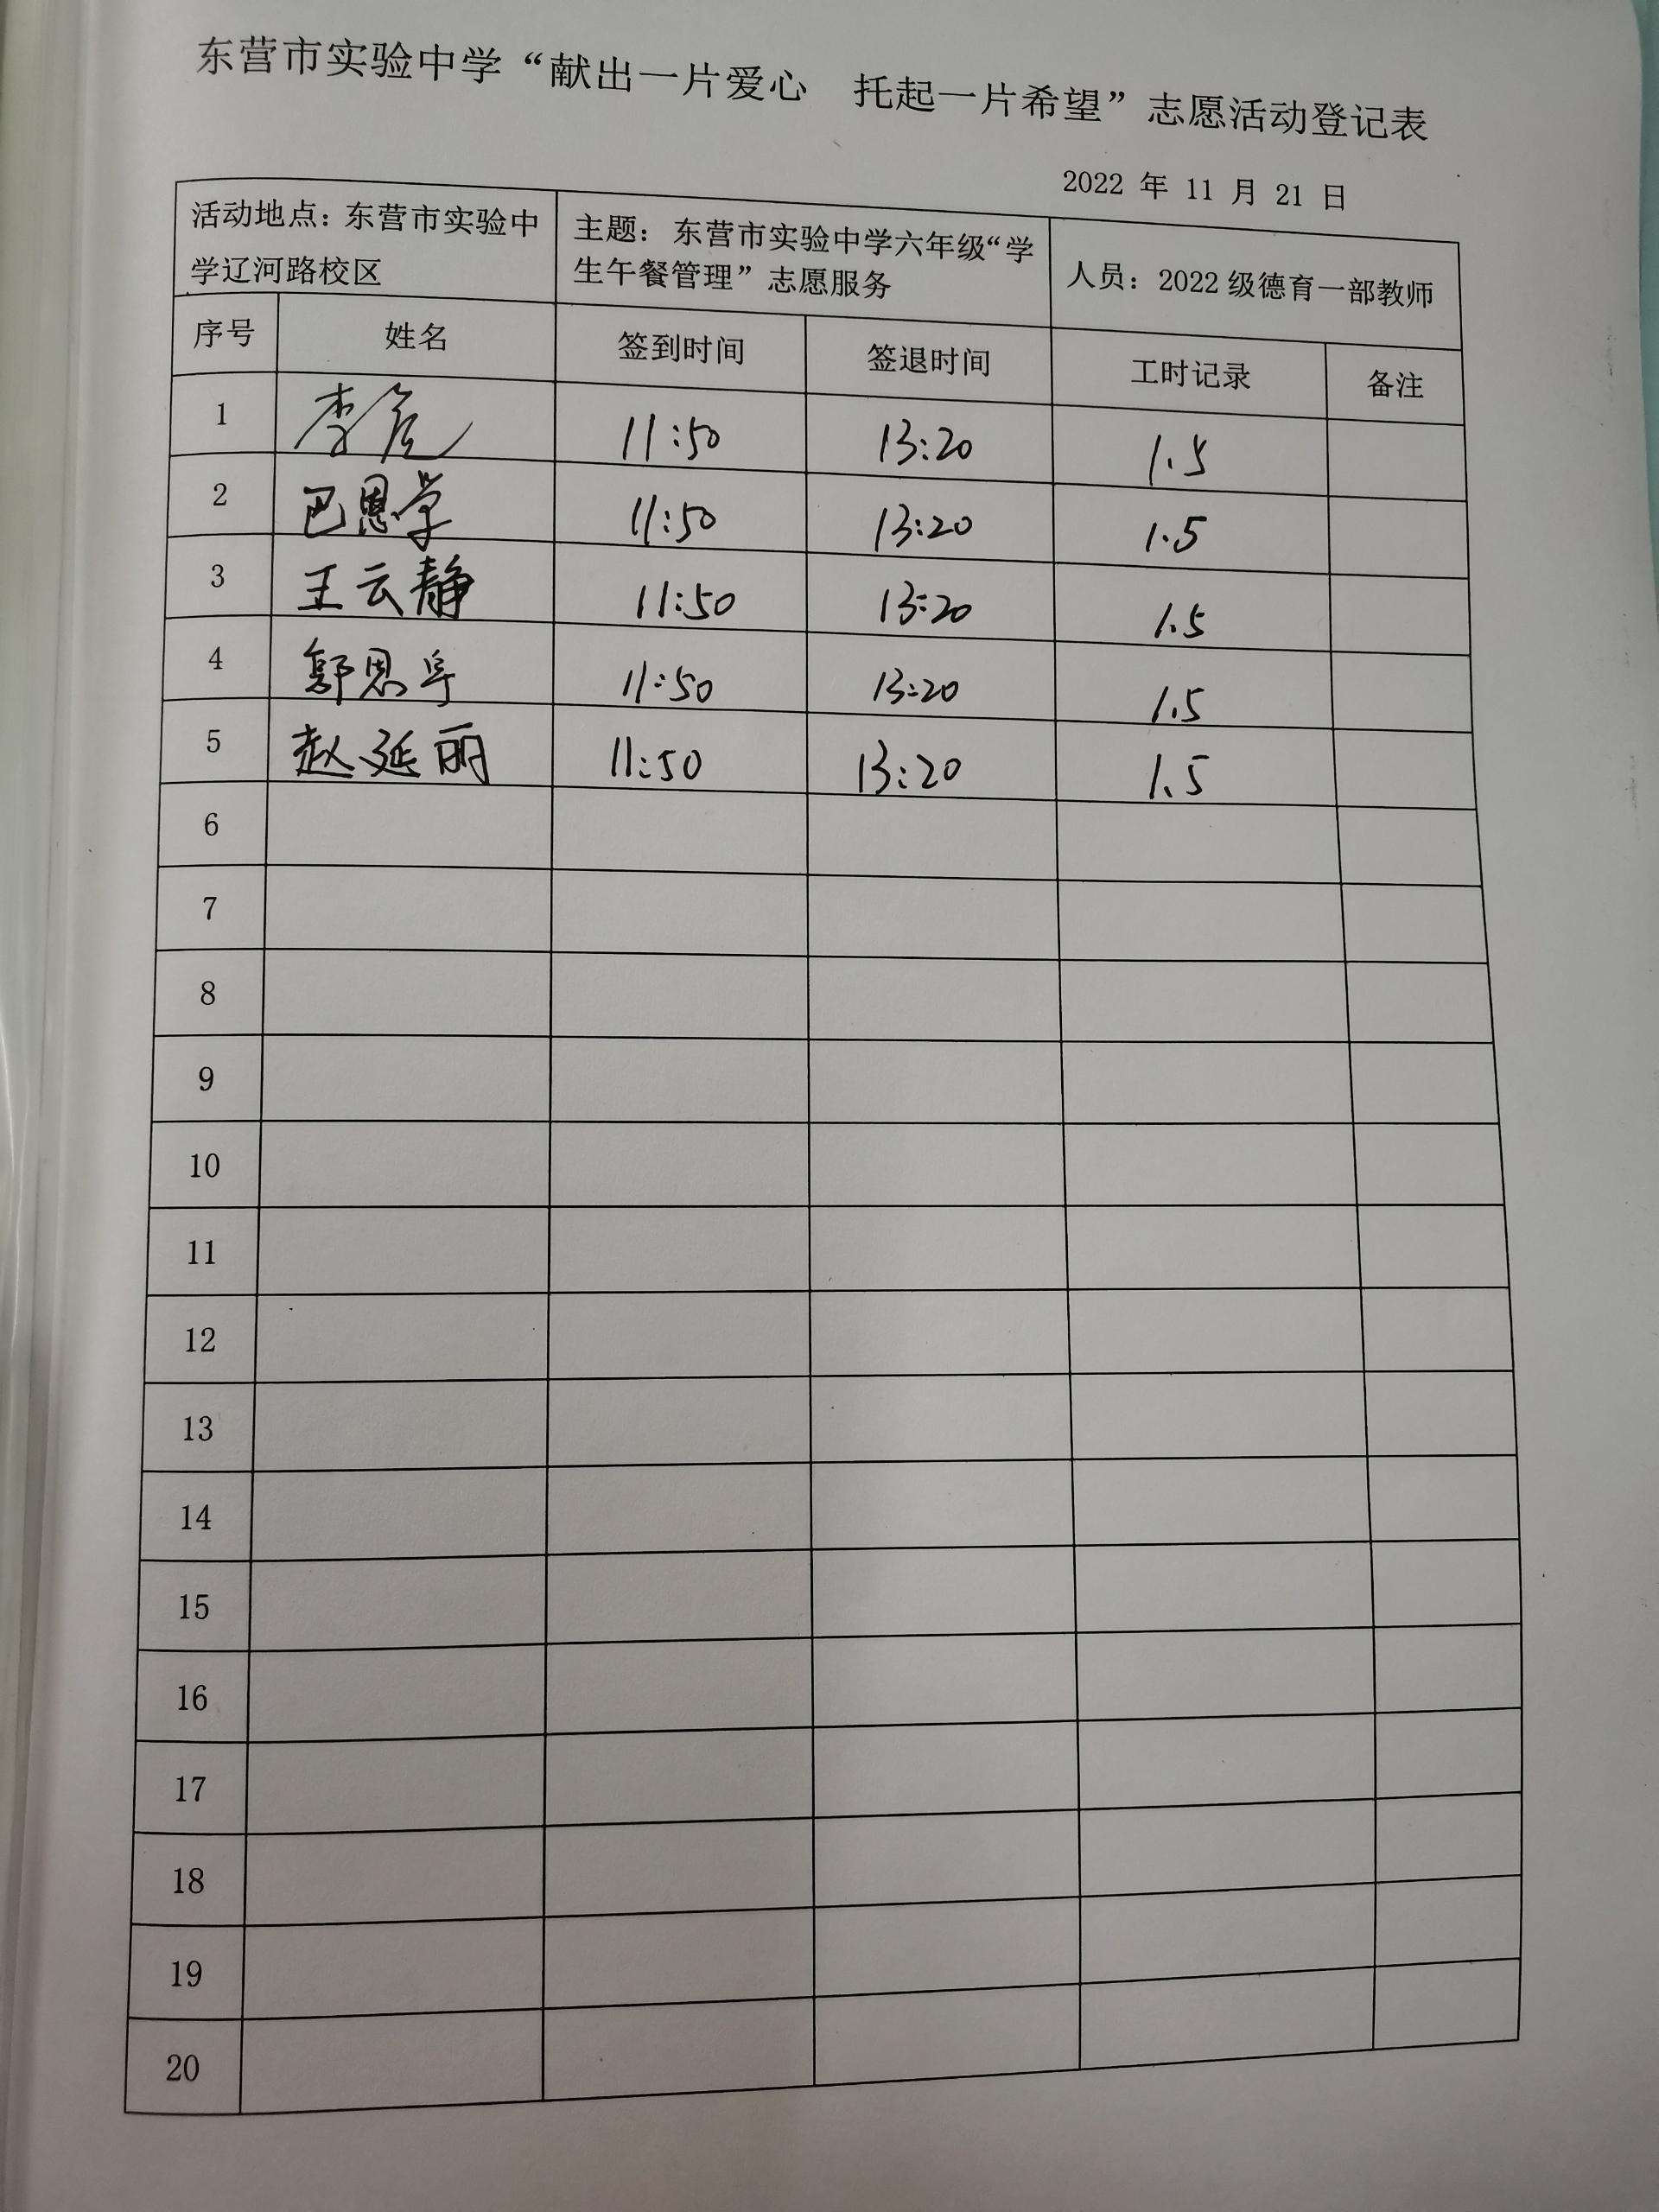 东营市实验中学“献出一片爱心 托起一片希望”志愿活动登记表
2022 年 11 月 21 日
活动地点：东营市实验中
学辽河路校区
主题：东营市实验中学六年级“学
生午餐管理”志愿服务
人员：2022 级德育一部教师
序号 姓名 签到时间 签退时间 工时记录 备注
1 李 11:50 13:20 1.5
2 巴恩 11:50 13:20 1.5
3 王云静 11:50 13:20 1.5
4 郭恩 11:50 13:20 1.5
5 赵延丽 11:50 13:20 1.5
6
7
8
9
10
11
12
13
14
15
16
17
18
19
20